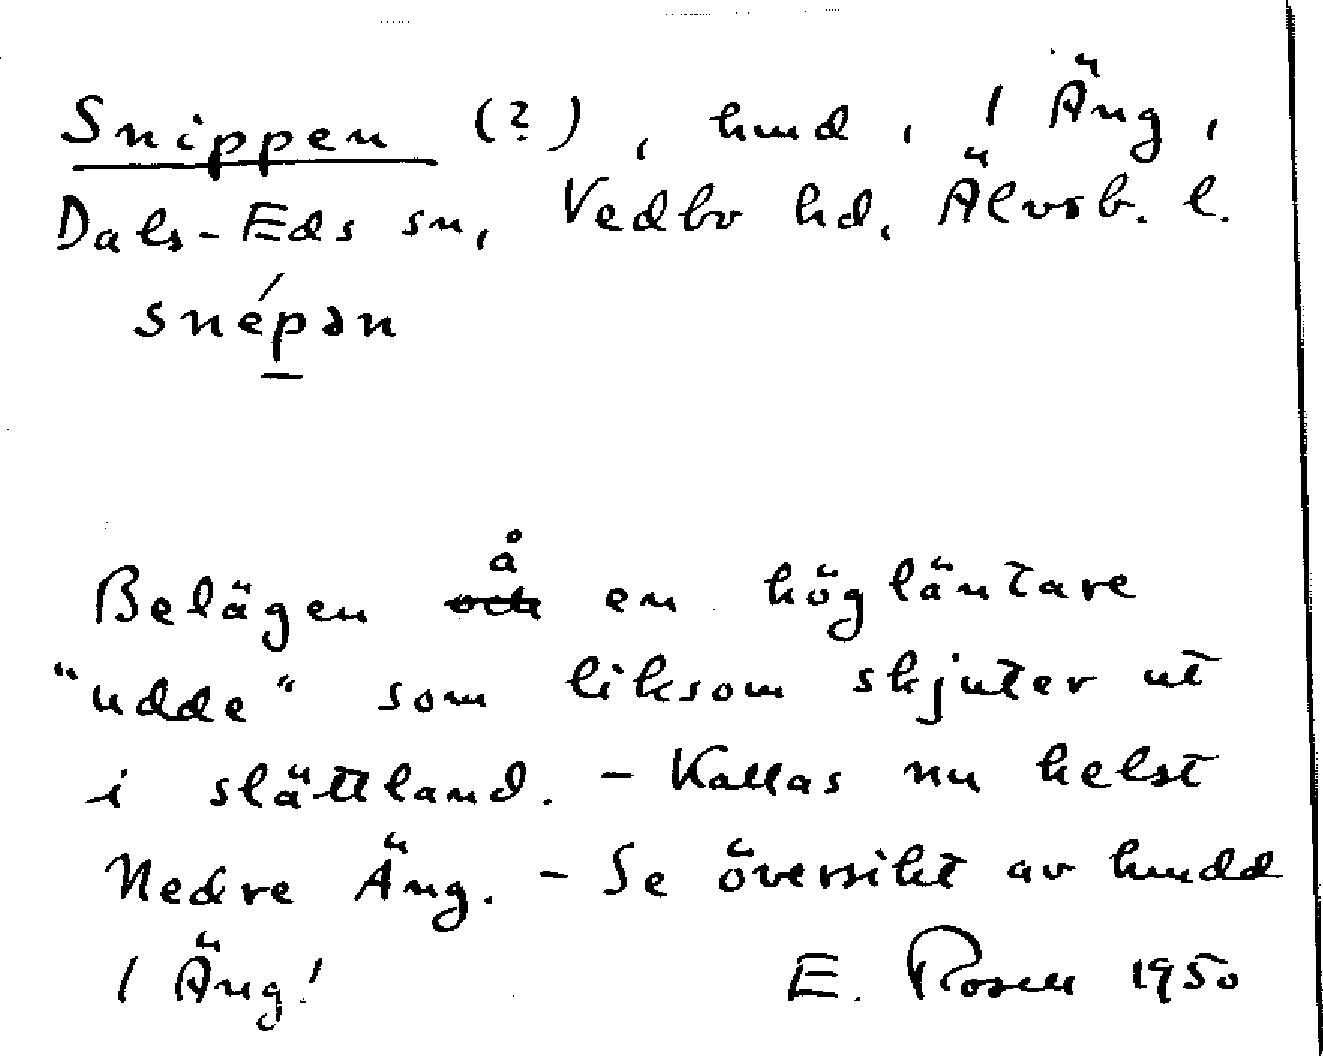 Snippen (?), hmd, 1 Äng,
Dals-Eds sn, Vedbo hd, Älvsb. l.
snépən
å
Belägen och en högläntare
"udde" som liksom skjuter ut
i slättland. - Kallas nu helst
Nedre Äng. - Se översikt av hmdd
1 Äng!
E. Rosell 1950